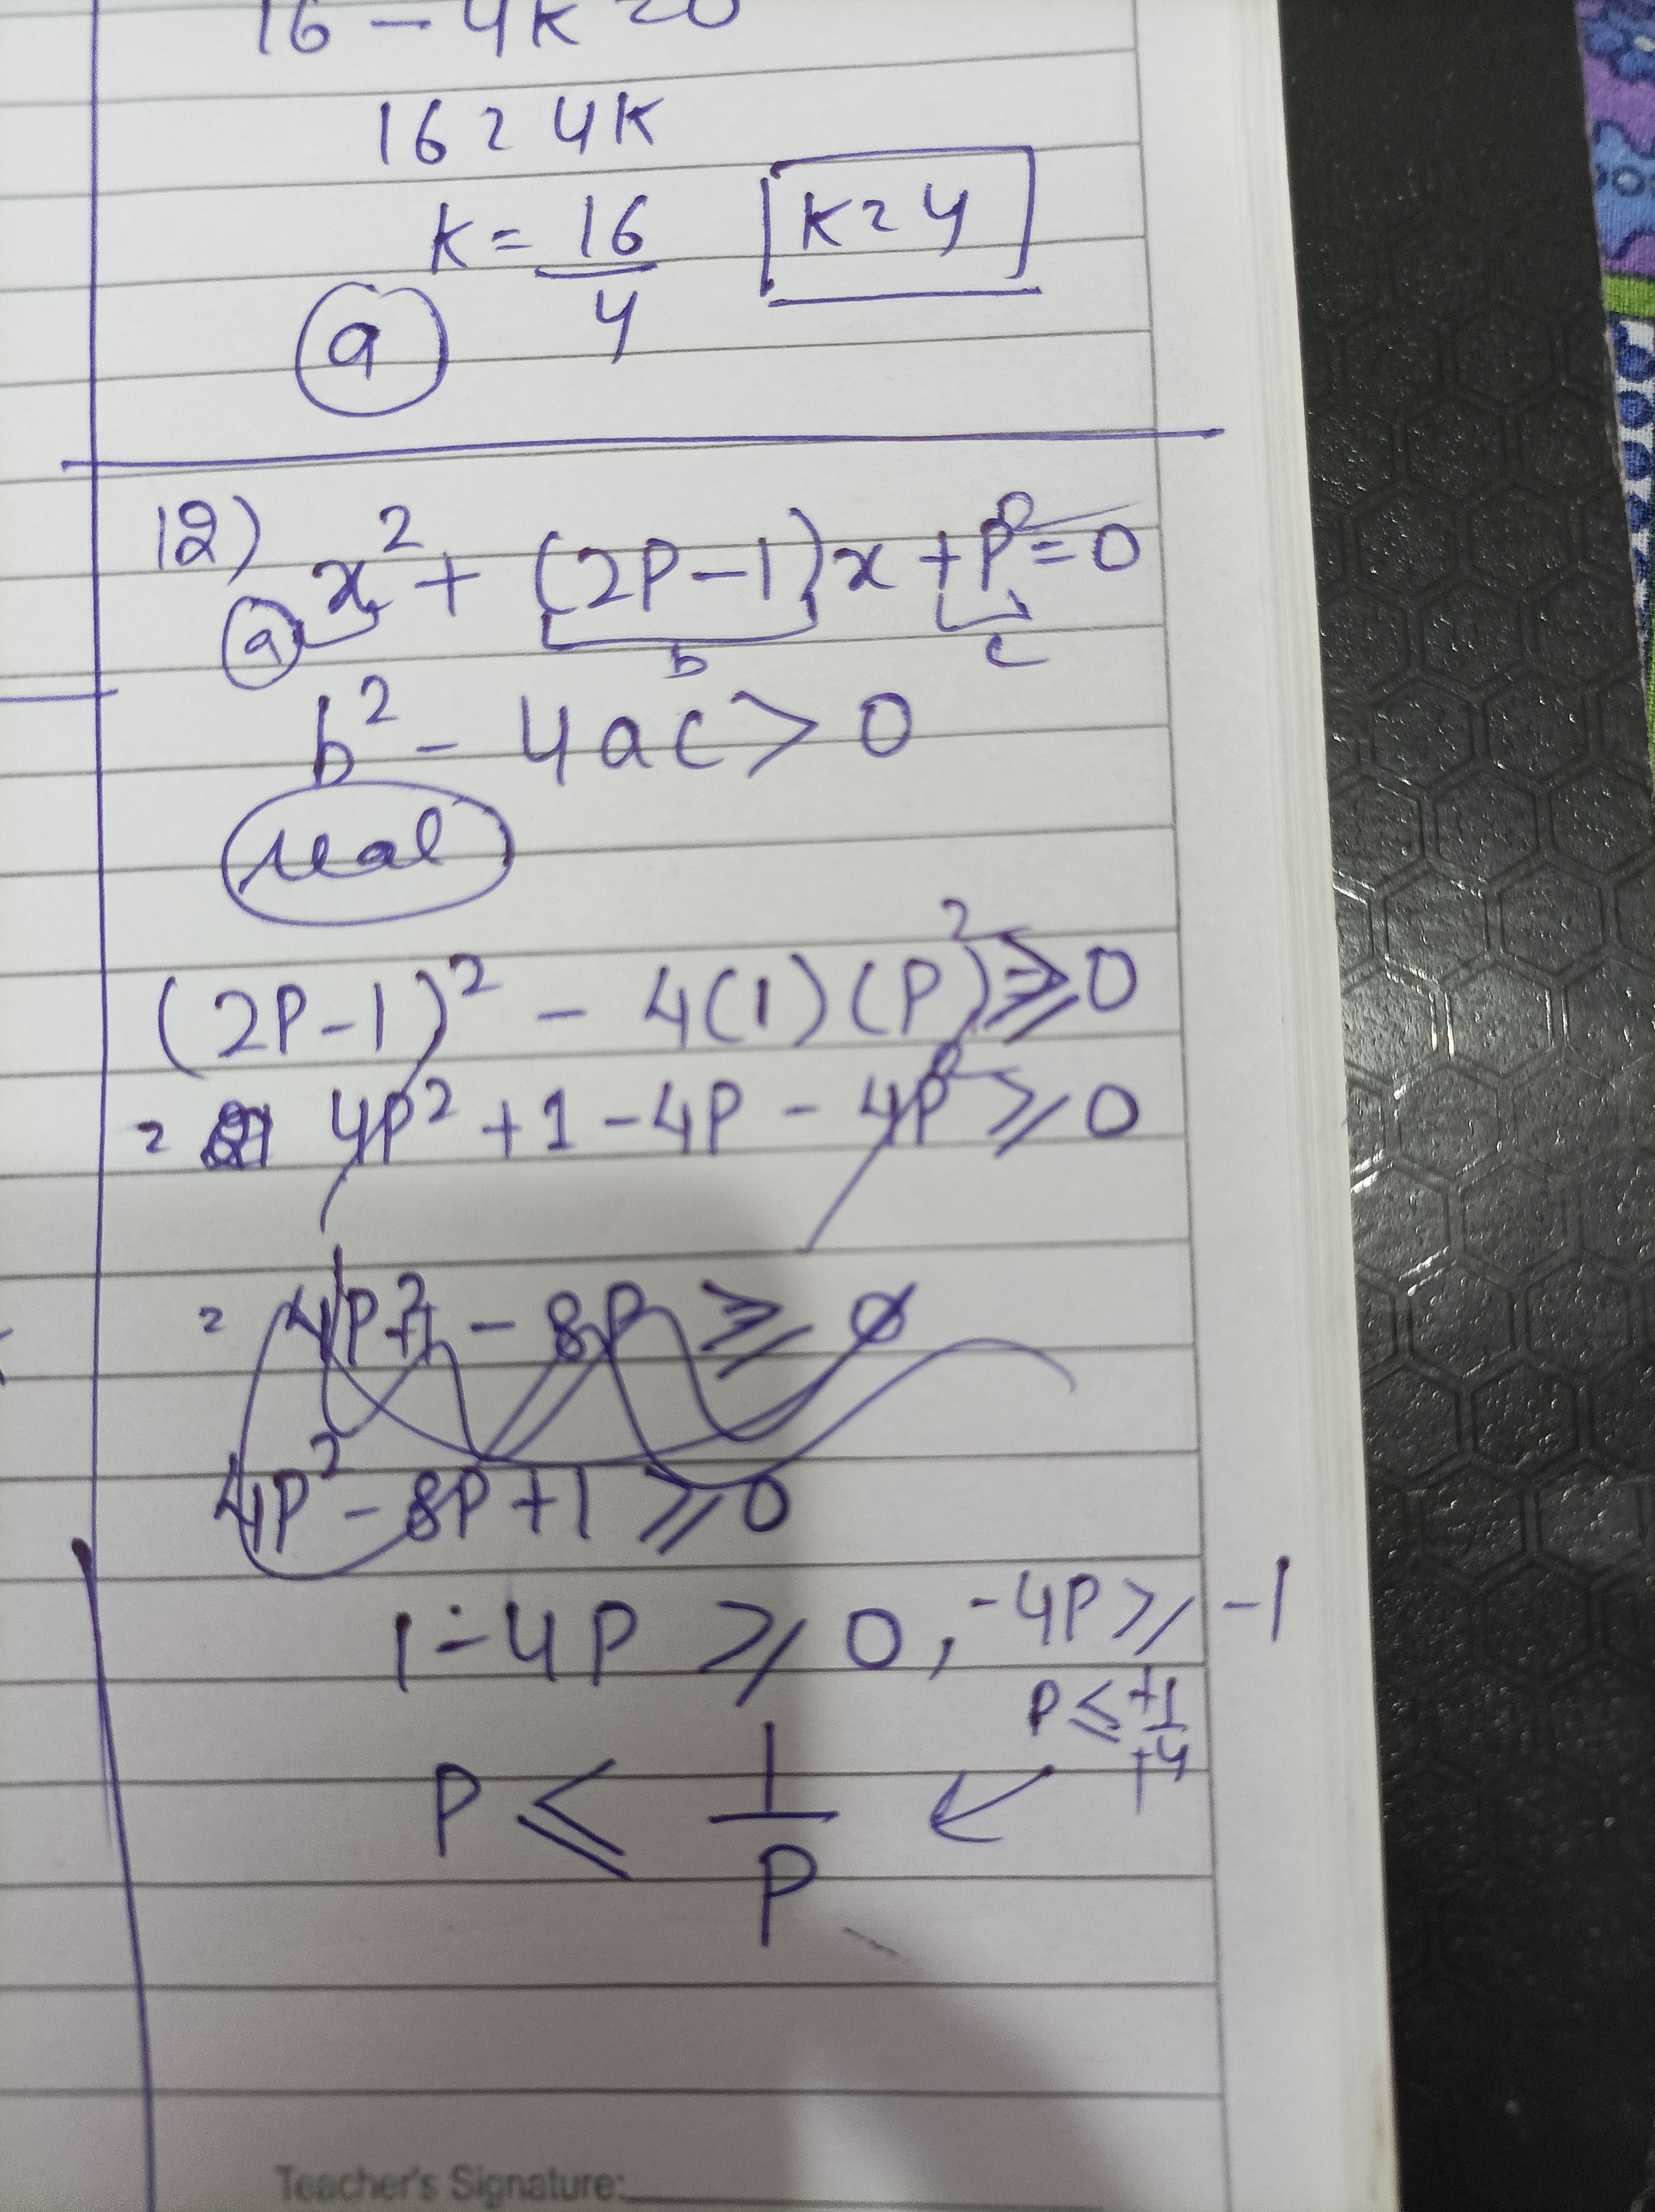 16 - 4K = 0
16 = 4K
K = 16/4   K = 4
a
12) x² + (2P-1)x + P² = 0
a b c
b² - 4ac > 0
real
(2P-1)² - 4(1)(P²) ≥ 0
= 4P² + 1 - 4P - 4P² ≥ 0
= 4P²+1 - 8P ≥ 0
4P² - 8P + 1 ≥ 0
1 - 4P ≥ 0, -4P ≥ -1
P ≤ +1/+4
P ≤ 1/P
Teacher's Signature: